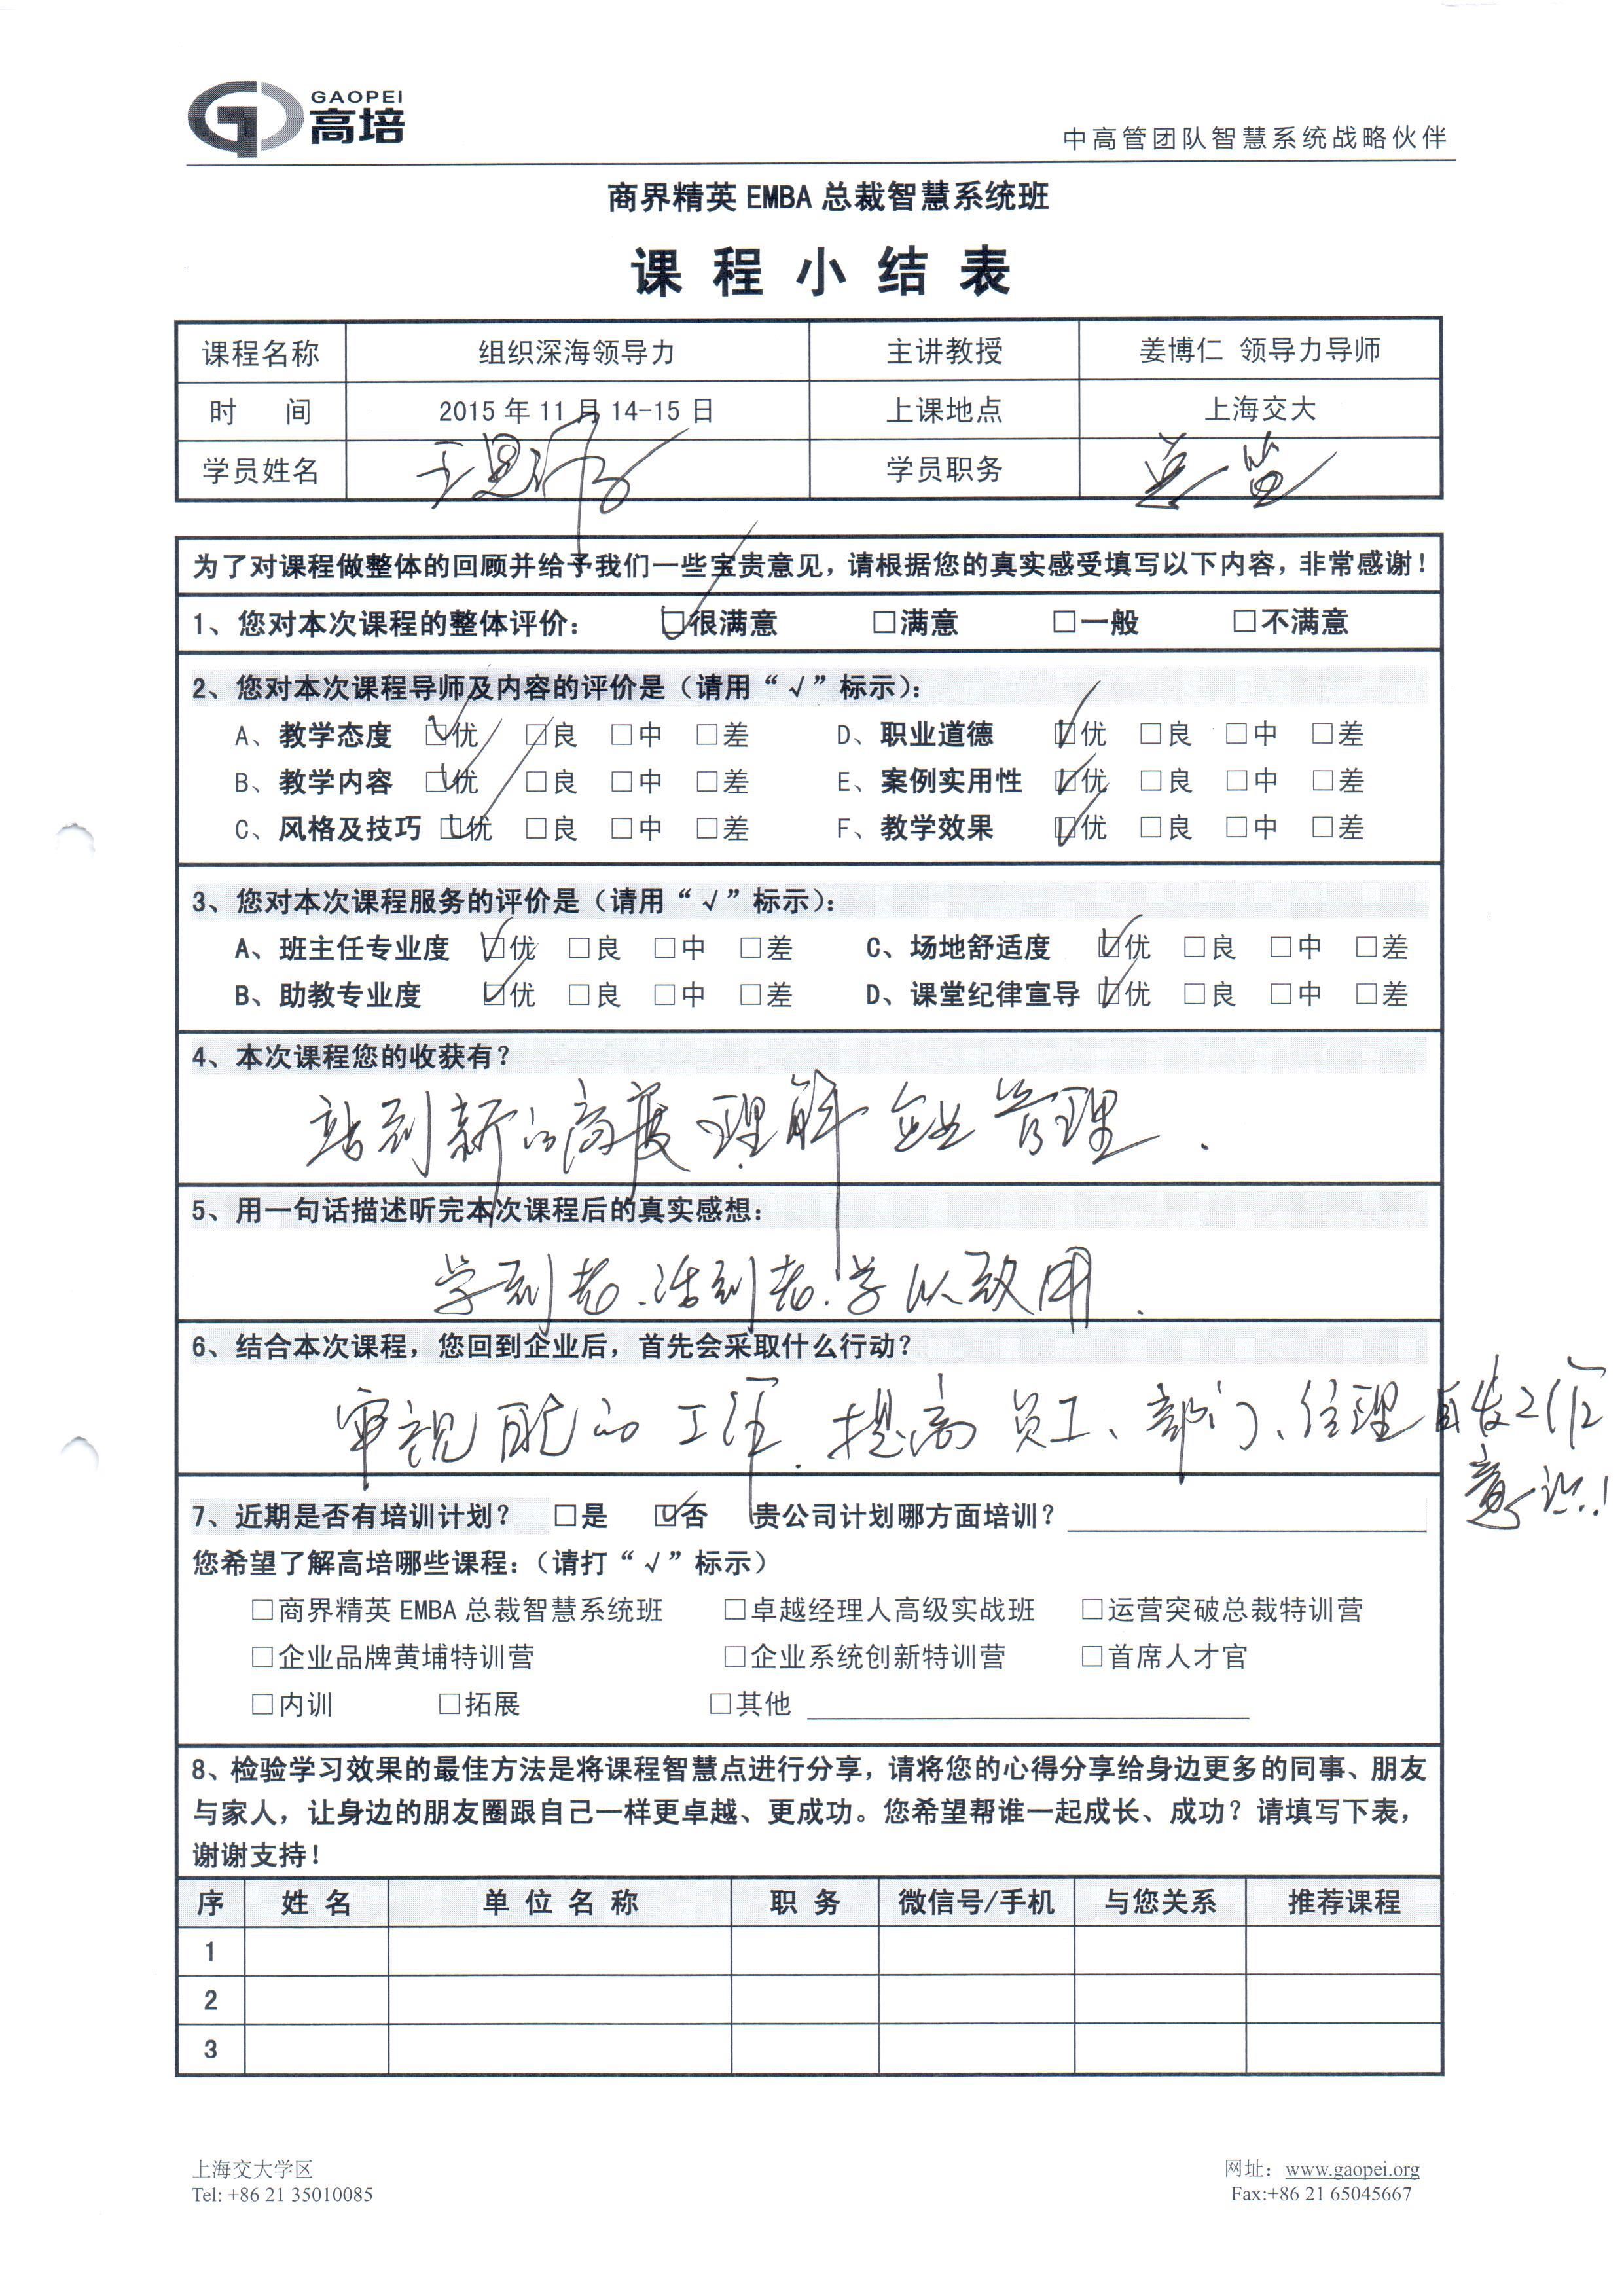 GAOPEI
高培
中高管团队智慧系统战略伙伴
商界精英 EMBA 总裁智慧系统班
课程小结表
课程名称 组织深海领导力 主讲教授 姜博仁 领导力导师
时 间 2015 年 11 月 14-15 日 上课地点 上海交大
学员姓名 学员职务 总监
为了对课程做整体的回顾并给予我们一些宝贵意见，请根据您的真实感受填写以下内容，非常感谢！
1、您对本次课程的整体评价： ☑很满意 □满意 □一般 □不满意
2、您对本次课程导师及内容的评价是（请用“√”标示）：
A、教学态度 ☑优 □良 □中 □差 D、职业道德 ☑优 □良 □中 □差
B、教学内容 ☑优 □良 □中 □差 E、案例实用性 ☑优 □良 □中 □差
C、风格及技巧 ☑优 □良 □中 □差 F、教学效果 ☑优 □良 □中 □差
3、您对本次课程服务的评价是（请用“√”标示）：
A、班主任专业度 ☑优 □良 □中 □差 C、场地舒适度 ☑优 □良 □中 □差
B、助教专业度 ☑优 □良 □中 □差 D、课堂纪律宣导 ☑优 □良 □中 □差
4、本次课程您的收获有？
站到新的高度理解企业管理.
5、用一句话描述听完本次课程后的真实感想：
学到老.活到老.学以致用.
6、结合本次课程，您回到企业后，首先会采取什么行动？
审视 的工作.提高员工、部门、经理自发工作
意识!
7、近期是否有培训计划？ □是 ☑否 贵公司计划哪方面培训？
您希望了解高培哪些课程：（请打“√”标示）
□商界精英 EMBA 总裁智慧系统班 □卓越经理人高级实战班 □运营突破总裁特训营
□企业品牌黄埔特训营 □企业系统创新特训营 □首席人才官
□内训 □拓展 □其他
8、检验学习效果的最佳方法是将课程智慧点进行分享，请将您的心得分享给身边更多的同事、朋友
与家人，让身边的朋友圈跟自己一样更卓越、更成功。您希望帮谁一起成长、成功？请填写下表，
谢谢支持！
序 姓 名 单 位 名 称 职 务 微信号/手机 与您关系 推荐课程
1
2
3
上海交大学区 网址：www.gaopei.org
Tel: +86 21 35010085 Fax:+86 21 65045667